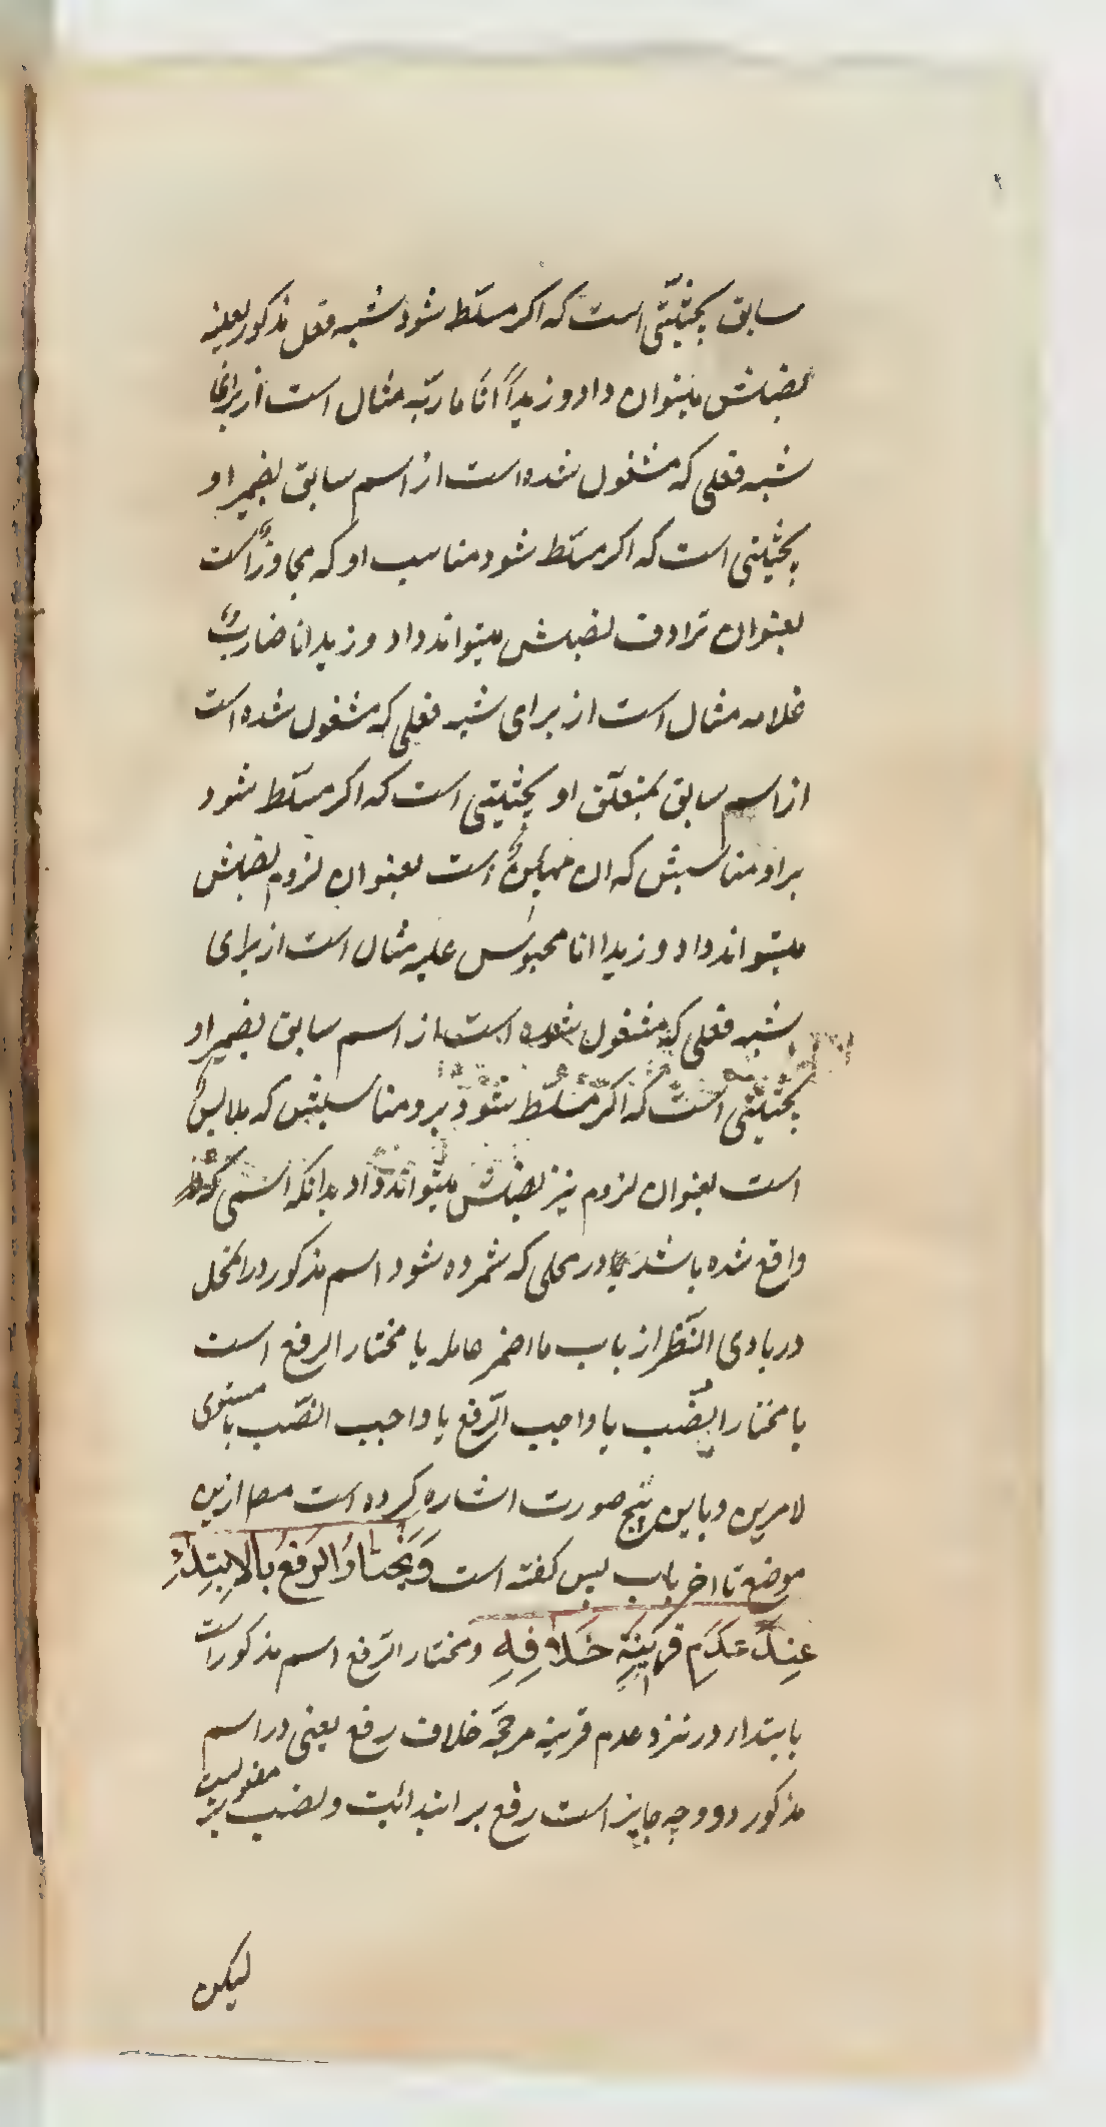 سابق بحیثیّتی است که اکر مسلّط شود شبه فعل مذکور بعینه
بضبش میتوان داد و زیداً انا مار بّه مثال است از برای
شبه فعلی که مشغول شده است از اسم سابق بضمیر او
بحیثیتی است که اکر مسلّط شود مناسب او که مجاوزٌ است
بعنوان ترادف نصبش میتواند داد و زیدا انا ضاربٌ
غلامه مثال است از برای شبه فعلی که مشغول شده است
از اسم سابق بمتعلّق او بحیثیتی است که اکر مسلّط شود
بر او مناسبش که ان مهینٌ است بعنوان لزوم نصبش
میتواند داد و زیدا انا محبوس علیه مثال است از برای
شبه فعلی که مشغول شده است از اسم سابق بضمیر او
بحیثیتی است که اکر مسلّط شود برو مناسبش که ملابسٌ
است بعنوان لزوم نیز نصبش میتواند داد بدانکه اسمی که
واقع شده باشد در محلی که شمرده شود اسم مذکور در انمحل
در بادی النّظر از باب ما اضمر عامله یا مختار الرفع است
یا مختار النصّب یا واجب الرّفع یا واجب النصّب یا مستوی
لامرین و باین پنج صورت اشاره کرده است مصر ازین
موضع تا اخر باب پس کفته است وَیُختارُ الرَفعُ بالاِبتِداءِ
عِندَ عَدَمِ قَرینَةِ خِلافِهِ و مختار الرّفع اسم مذکور است
بابتدا در نزد عدم قرینه مرجحّه خلاف رفع یعنی در اسم
مذکور دو وجه جایز است رفع بر ابتدائیت و نصب بر مفعولیت
لیکن